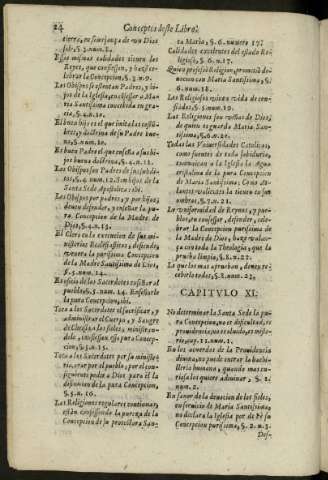 24 Conceptos deste Libro.
tierra, en semejança de un Dios
solo, §. 3. num. 8.
Essas mismas calidades tienen los
Reyes, que confiessan, y hazen ce-
lebrar la Concepcion, §. 3. n. 9.
Los Obispos se ostentan Padres, y hi-
jos de la Iglesia, confessar a Ma-
ria Santissima concebida en gra-
cia, §. 4. n. 10.
El buen hijo es el que imita las costũ-
bres, y doctrina de su Padre bue-
no, §. num. 10.
Es buen Padre el que enseña a su hi-
jo buena doctrina, §. 4. n. 11.
Los Obispos son Padres de sus subdi-
tos, §. 4. num. 12. Son hijos de la
Santa Sede Apostolica: ibi.
Los Obispos por padres, y por hijos,
deuen defender, y enseñar la pu-
ra Concepcion de la Madre de
Dios, §. 4. n. 13.
El Clero en la execucion de sus mi-
nisterios Eclesiasticos, defiende,
y venera la purissima Concepcion
de la Madre Santissima de Dios,
§. 5. num. 14.
Es oficio de los Sacerdotes enseñar al
pueblo, §. 5. num. 14. Enseñarle
la pura Concepcion, ibi.
Toca a los Sacerdotes el sacrificar, y
administrar el Cuerpo, y Sangre
de Christo a los fieles, ministran-
dole, confiessan essa pura Concep-
cion, §. 5. n. 15.
Toca a los Sacerdotes por su ministe-
rio, orar por el pueblo, por el con-
siguiente pedir a Dios para èl la
difinicion de la pura Concepcion,
§. 5. n. 16.
Las Religiones regulares continuas,
estàn confessando la pureza de la
Concepcion de su protectora San-
ta Maria, §. 6. numero 17.
Calidades excelentes del estado Re-
ligioso, §. 6. n. 17.
Quien professa Religion, promete de-
uocion con Maria Santissima, §.
6. num. 18.
Los Religiosos viuen vida de con-
fessados, §. 5. num. 19.
Las Religiones son
de quien es guarda Maria San-
tissima, §. 6. n. 20.
Todas las Vniuersidades Catolicas,
como fuentes de toda sabiduria,
comunican a la Iglesia la Agua
cristalina de la pura Concepcion
de Maria Santissima; Como
§. 7. n. 21.
La vniuersidad de Reynos, y pue-
blos, en confessar, defender, cele-
brar la Concepcion purissima de
la Madre de Dios, haze
con toda la Theologia, que la
prueba limpia, §. 8. n. 22.
Lo que los mas aprueban, deuen re-
cebirlo todos, §. 8. n. 23.
CAPITVLO XI.
No determinar la Santa Sede la pu-
ra Concepcion, no es dificultad, es
prouidencia; no es oluido, es miste-
rio, cap. 11. num. 1.
En los acuerdos de la Prouidencia
diuina, no puede entrar la bachi-
lleria humana, quando mas cu-
riosa los quiere adiuinar, §. 2.
num. 2.
En fauor de la deuocion de los fieles,
en seruicio de Maria Santissima,
no declara la Iglesia por de Fè su
Concepcion purissima, §. 2. n. 3.
Def-